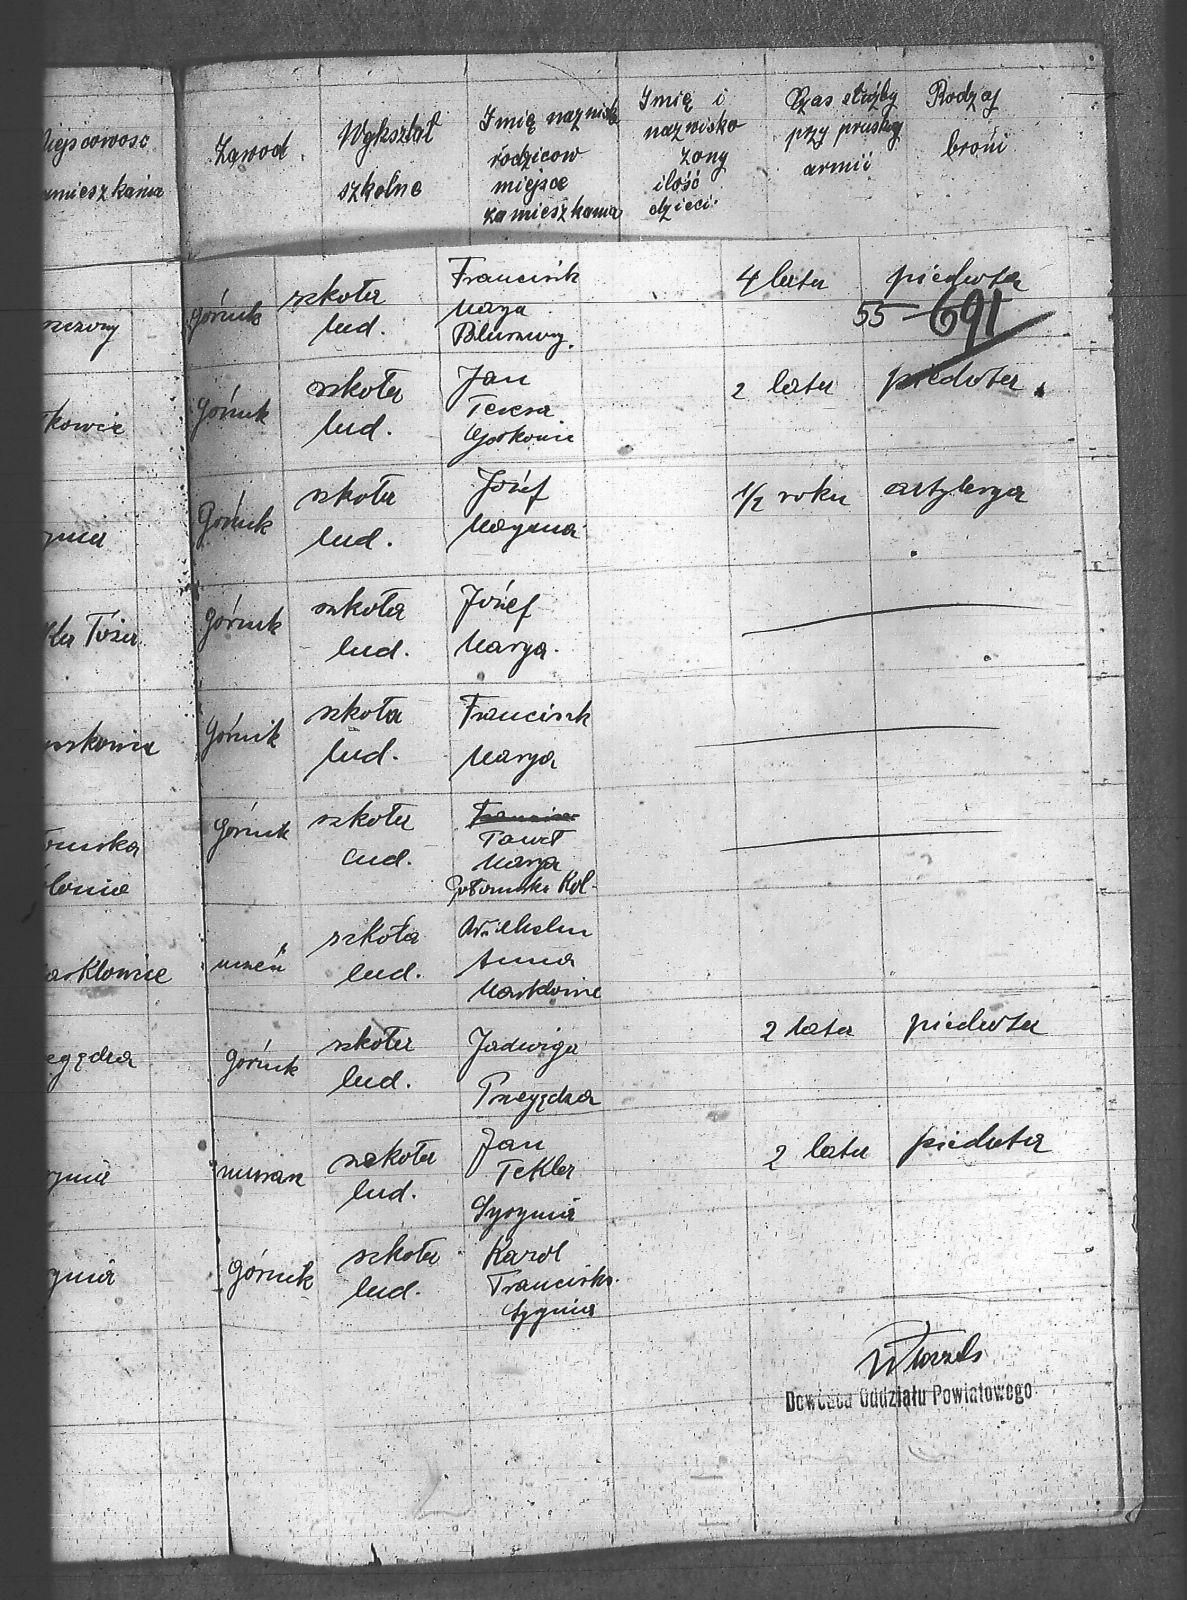 Zawod
Wykształ
szkolne
Imię nazwisk
rodzicow
miejsce
zamieszkania
Imię i
nazwisko
żony
ilość
dzieci
Czas służby
przy pruskiej
armii
Rodzaj
broni
górnik
szkoła
lud.
Francisik
Marya
4 lata
piechota
55-691
górnik
szkoła
lud.
Jan
Teresa
2 lata
piechota
Górnik
szkoła
lud.
Józef
Maryna
1/2 roku
artylerya
górnik
szkoła
lud.
Józef
Marya.
górnik
szkoła
lud.
Francisik
Marya
górnik
szkoła
lud.
Paweł
Marya
Kol.
arklowice
uczeń
szkoła
lud.
Wilhelm
Anna
Marklowice
egędza
górnik
szkoła
lud.
Jadwiga
Przegędza
2 lata
piechota
murarz
szkoła
lud.
Jan
Tekla
Syrynia
2 lata
piechota
górnik
szkoła
lud.
Karol
Franciska
Syrynia
Dowódca Oddziału Powiatowego